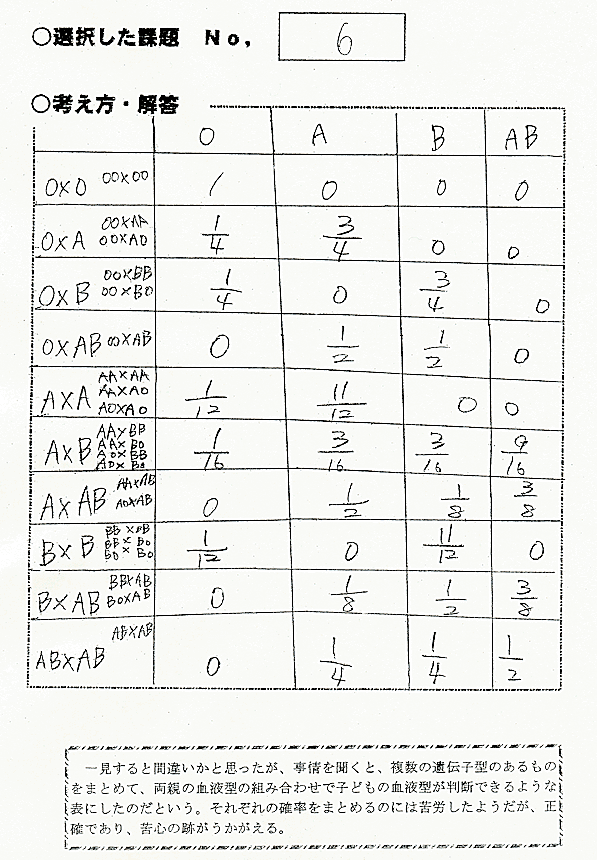 ○選択した課題　No，　6
○考え方・解答
O A B AB
O×O OO×OO 1 0 0 0
O×A OO×AA OO×AO 1/4 3/4 0 0
O×B OO×BB OO×BO 1/4 0 3/4 0
O×AB OO×AB 0 1/2 1/2 0
A×A AA×AA AA×AO AO×AO 1/12 11/12 0 0
A×B AA×BB AA×BO AO×BB AO×BO 1/16 3/16 3/16 9/16
A×AB AA×AB AO×AB 0 1/2 1/8 3/8
B×B BB×BB BB×BO BO×BO 1/12 0 11/12 0
B×AB BB×AB BO×AB 0 1/8 1/2 3/8
AB×AB AB×AB 0 1/4 1/4 1/2
一見すると間違いかと思ったが、事情を聞くと、複数の遺伝子型のあるもの
をまとめて、両親の血液型の組み合わせで子どもの血液型が判断できるような
表にしたのだという。それぞれの確率をまとめるのには苦労したようだが、正
確であり、苦心の跡がうかがえる。